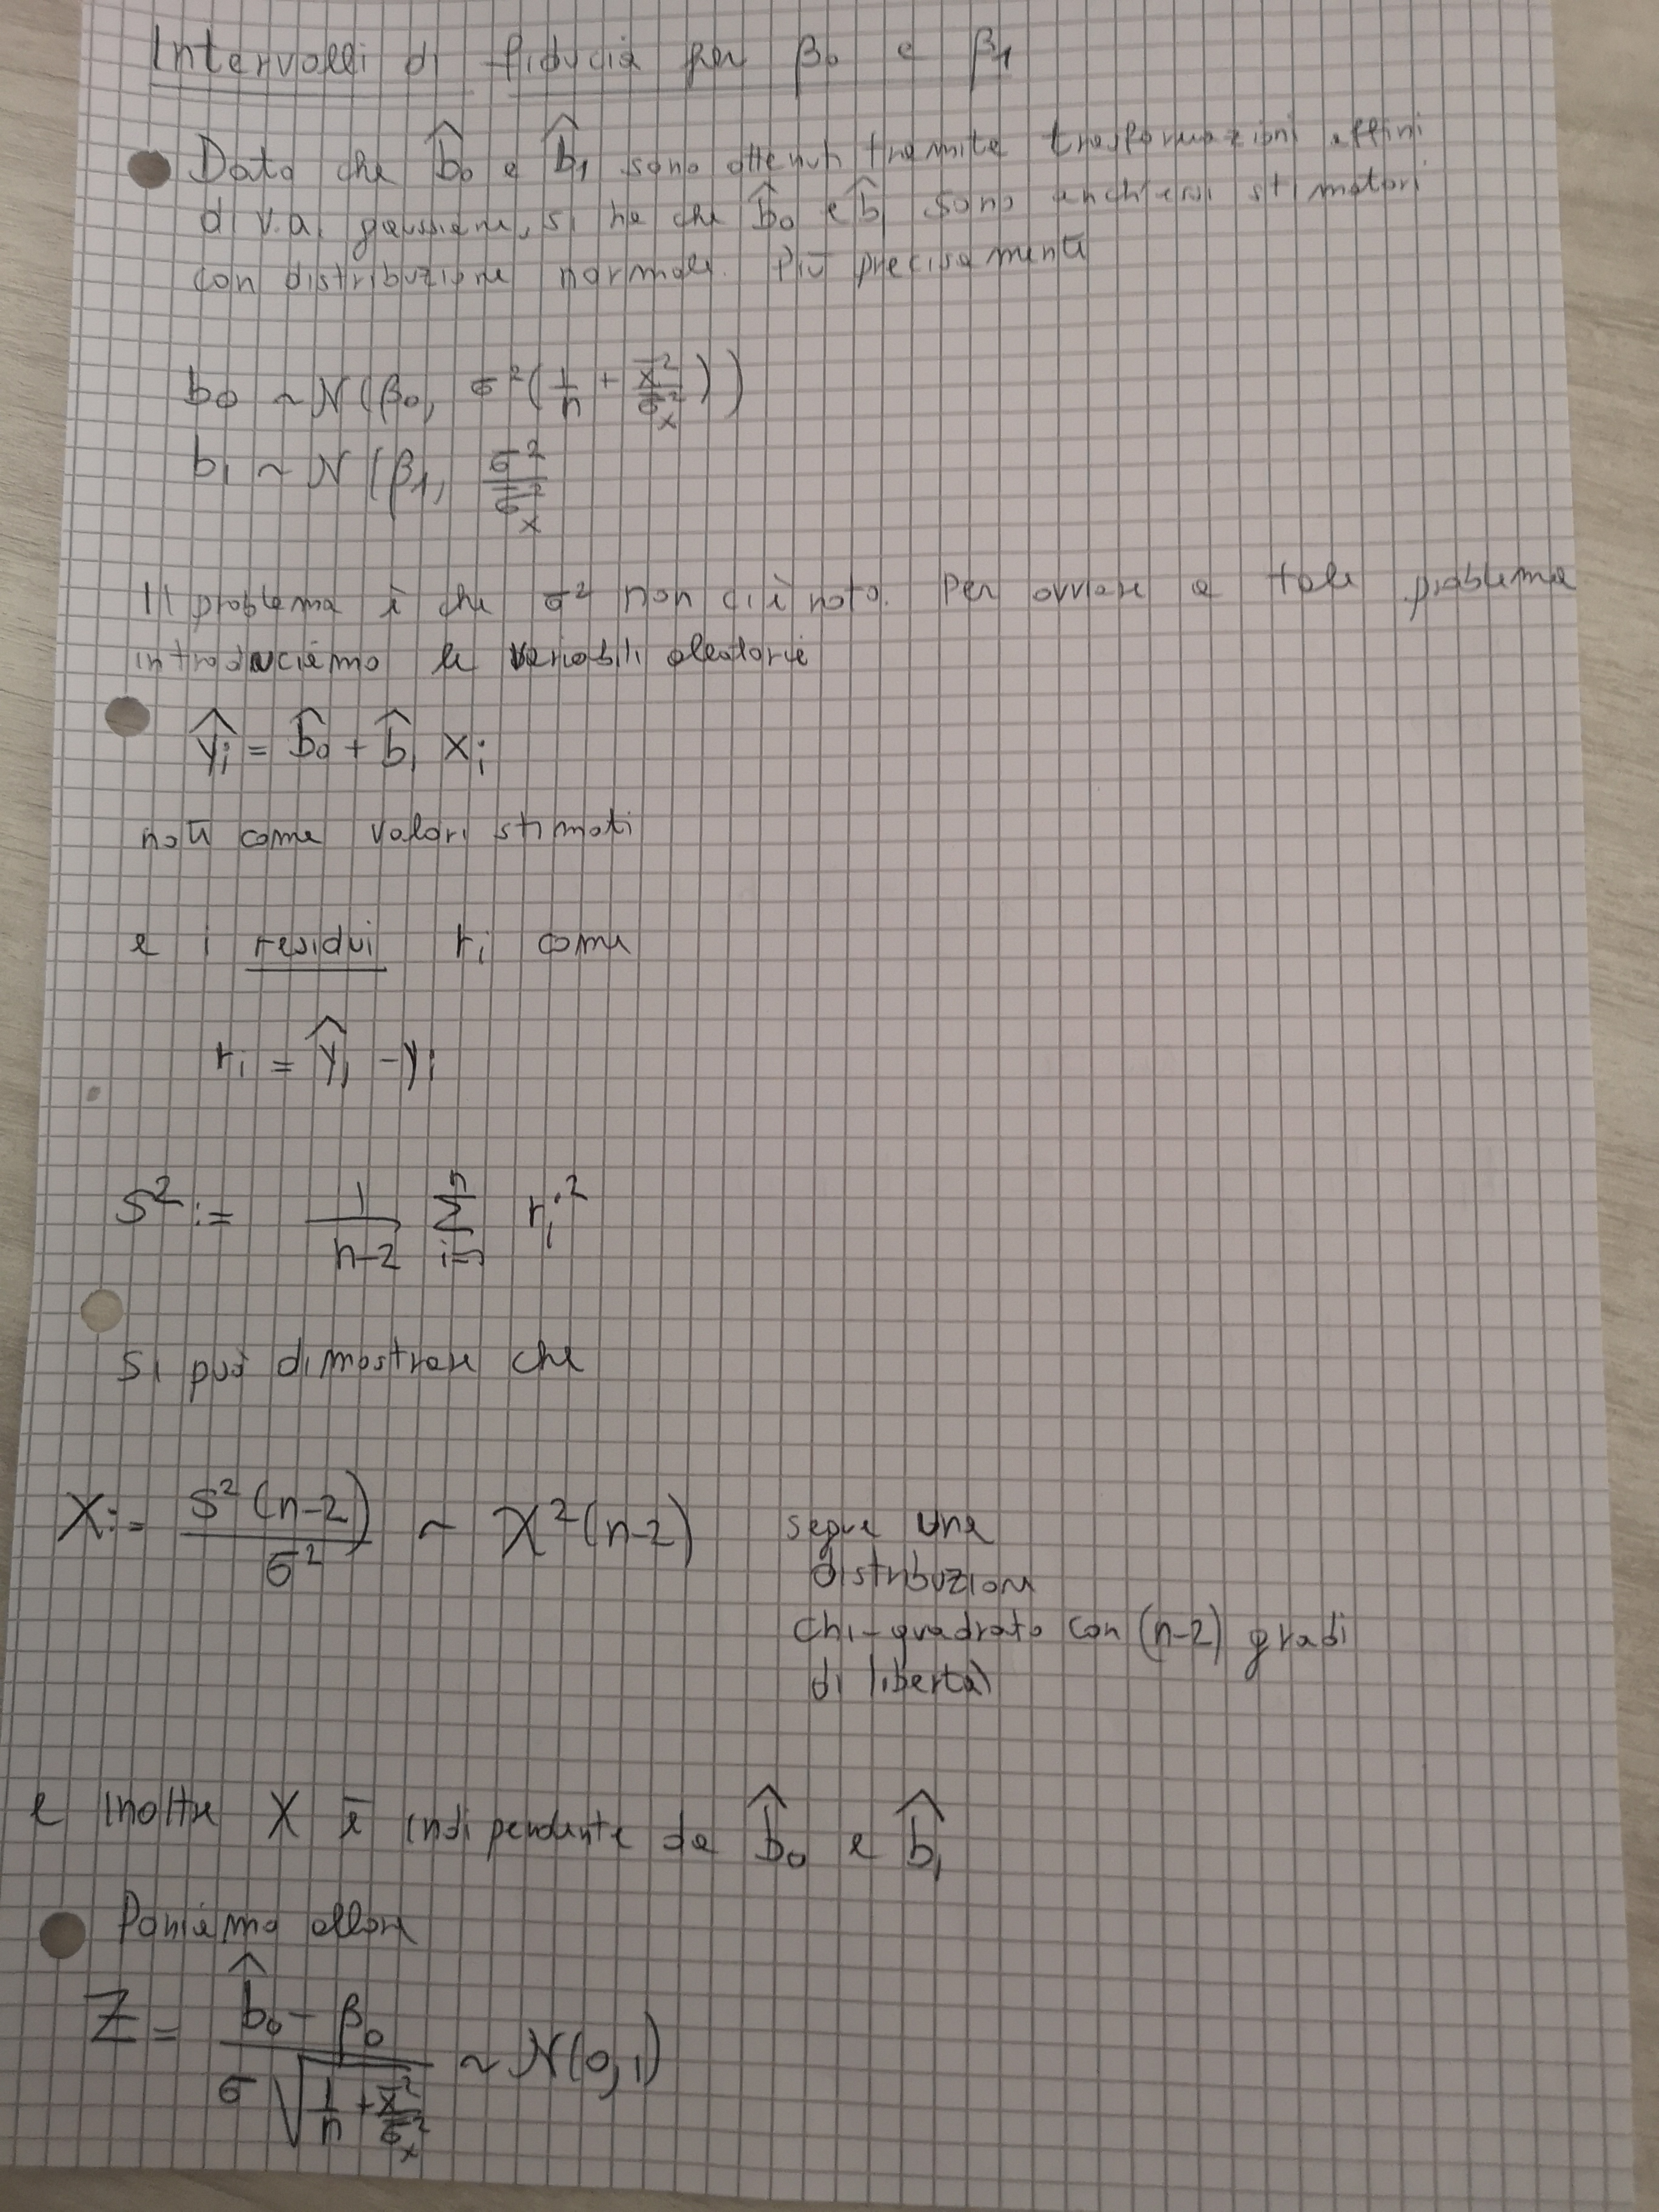 Intervalli di fiducia per β₀ e β₁
Dato che b̂₀ e b̂₁ sono ottenuti tramite trasformazioni affini
di v.a. gaussiane, si ha che b̂₀ e b̂₁ sono anch'essi stimatori
con distribuzione normale. Più precisamente
b₀ ~ N(β₀, σ²(1/n + x̄²/σₓ²))
b₁ ~ N(β₁, σ²/σₓ²
Il problema è che σ² non ci è noto. Per ovviare a tale problema
introduciamo le variabili aleatorie
ŷᵢ = b̂₀ + b̂₁ xᵢ
noti come valori stimati
e i residui rᵢ come
rᵢ = ŷᵢ - yᵢ
S² := 1/(n-2) Σᵢ₌₁ⁿ rᵢ²
Si può dimostrare che
X := S²(n-2)/σ² ~ χ²(n-2) segue una
distribuzione
chi-quadrato con (n-2) gradi
di libertà
e inoltre X è indipendente da b̂₀ e b̂₁
Poniamo allora
Z = (b̂₀ - β₀)/(σ √(1/n + x̄²/σₓ²)) ~ N(0,1)